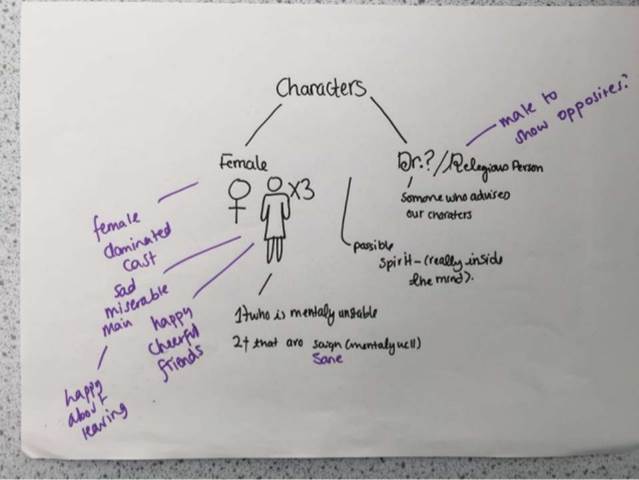 Characters
male to
show opposites?
Female
Dr.?/Relegious Person
X3
Somone who advised
our charaters
female
dominated
cast
possible
spirit-(really inside
the mind).
sad
miserable
main
happy
cheerful
friends
1♀who is mentaly unstable
2♀ that are saign (mentaly well)
Sane
happy
about
leaving